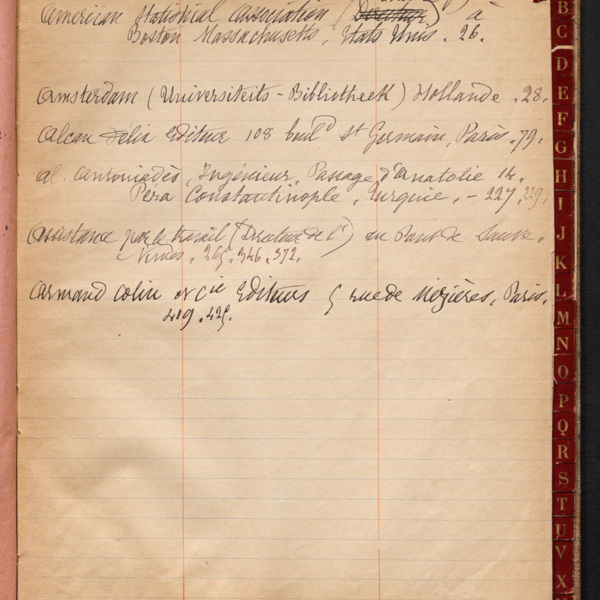 American Statistical Association (Boston) à
Boston Massachusetts, Etats Unis. 26.
Amsterdam (Universiteits-Bibliotheek) Hollande. 28.
Alcan Félix Editeur 108 boulᵈ St Germain, Paris. 79.
al. Antoniadès, Ingénieur, Passage d'Anatolie 14.
Péra Constantinople, Turquie. - 227. 229.
Assistance par le travail (Directeur de l') au Pont de Sauve.
Nîmes. 265. 346. 372.
Armand Colin et Cie Editeurs 5 rue de Mézières, Paris.
419. 425.
B
C
D
E
F
G
H
I
J
K
L
M
N
O
P
Q
R
S
T
U
V
X